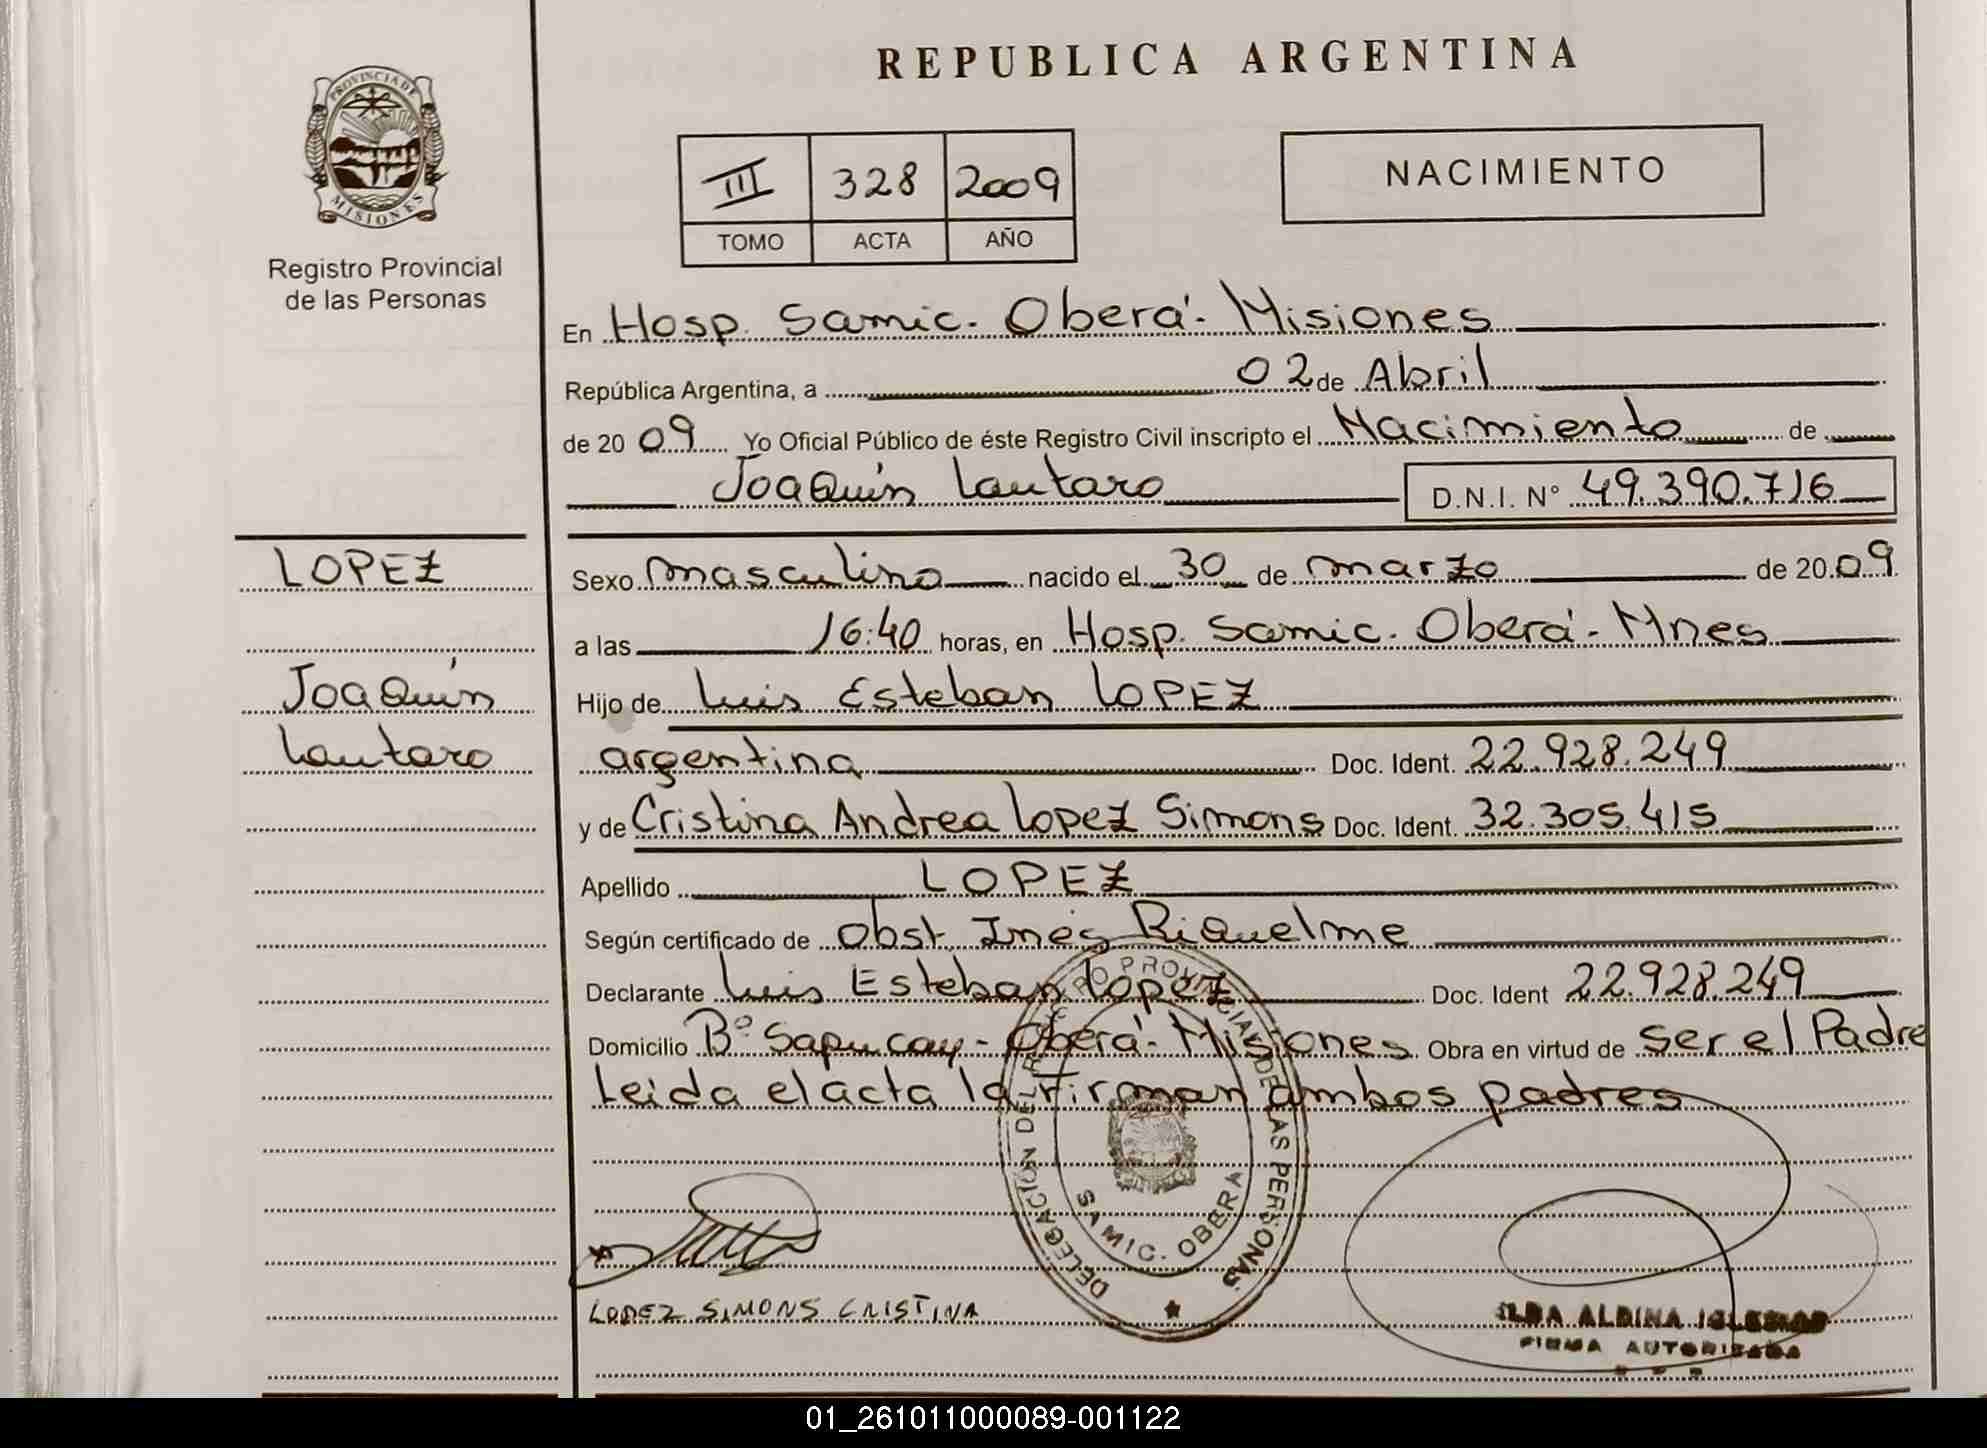 REPUBLICA ARGENTINA
PROVINCIA DE
MISIONES
Registro Provincial
de las Personas
III 328 2009
TOMO ACTA AÑO
NACIMIENTO
En Hosp. Samic. Oberá. Misiones
República Argentina, a 02 de Abril
de 20 09 Yo Oficial Público de éste Registro Civil inscripto el Nacimiento de
Joaquín Lautaro D.N.I. N° 49.390.716
LOPEZ
Joaquín
Lautaro
Sexo masculino nacido el 30 de marzo de 20 09
a las 16:40 horas, en Hosp. Samic. Oberá - Mnes
Hijo de Luis Esteban LOPEZ
argentina Doc. Ident. 22.928.249
y de Cristina Andrea Lopez Simons Doc. Ident. 32.305.415
Apellido LOPEZ
Según certificado de Obst. Inés Riquelme
Declarante Luis Esteban Lopez Doc. Ident 22.928.249
Domicilio B° Sapucay - Oberá - Misiones Obra en virtud de ser el Padre
Leida el acta la firman ambos padres
DELEGACIÓN DEL REGISTRO PROVINCIAL DE LAS PERSONAS
SAMIC. OBERA
LOPEZ SIMONS CRISTINA
ILDA ALDINA IGLESIAS
FIRMA AUTORIZADA
01_261011000089-001122